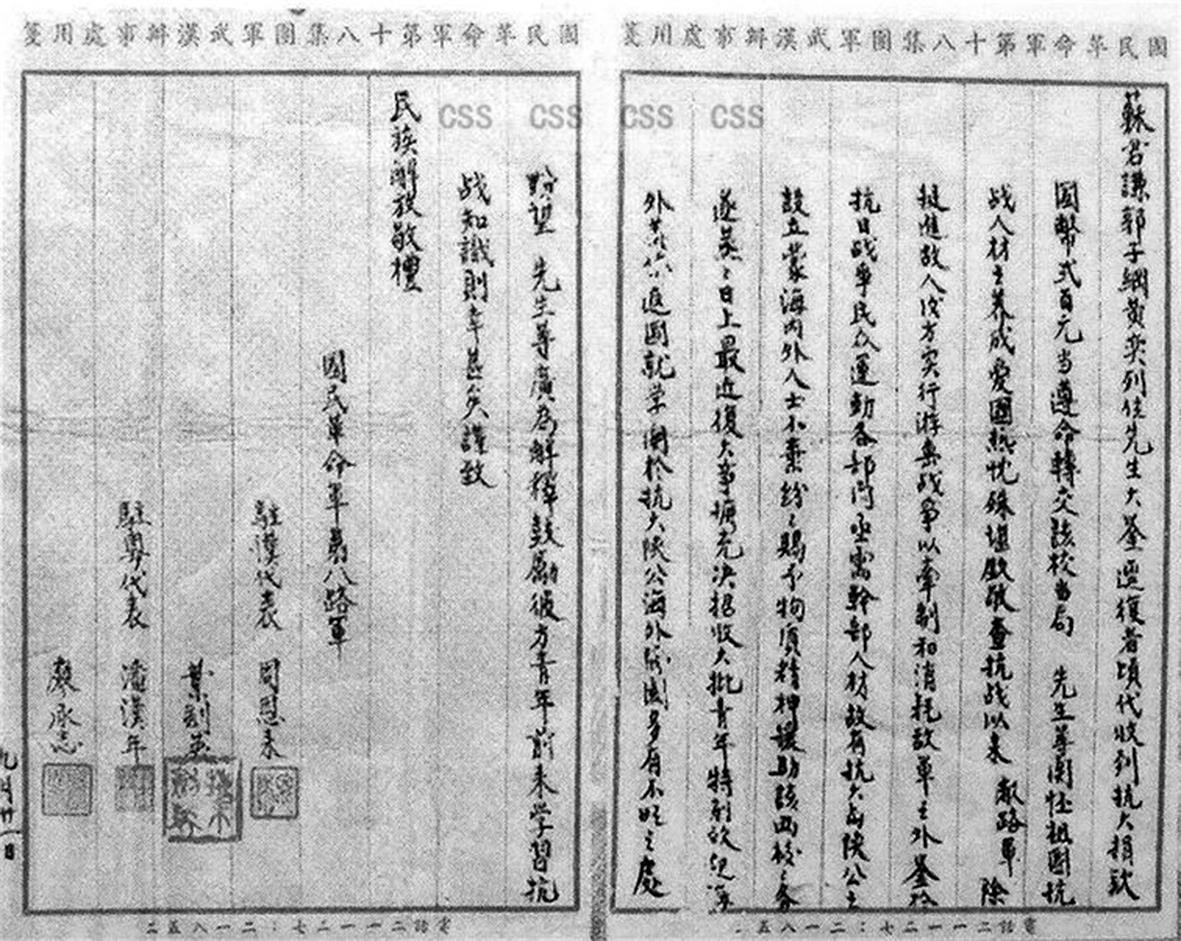 國民革命軍第十八集團軍武漢辦事處用箋
蘇君謙郭子綱黄奕列位先生大鑒逕復者頃代收到抗大捐欵
國幣弍百元当遵命轉交該校当局 先生等関怀祖國抗
战人材之养成爱國热忱殊堪敬查抗战以来 敝路軍 除
挺進敌人后方实行游击战爭以牽制和消耗敌軍之外鉴於
抗日战爭民众運動各部门亟需幹部人材故有抗大与陝公之
設立蒙海内外人士不棄紛々賜予物质精神援助該两校之
遂蒸々日上最近復大事擴充决招收大批青年特别
外 返國就学関於抗大陝公海外各國多有不明之處
css css css css
國民革命軍第十八集團軍武漢辦事處用箋
盼望 先生等廣為解釋鼓勵彼方青年前来学習抗
战知識則幸甚矣謹致
民族解放敬禮
國民革命軍第八路軍
駐漢代表 周恩来
葉剑英
駐粵代表 潘漢年
廖承志
九月廿一日
電話二一一二七:二一八五二
電話二一一二七:二一八五二